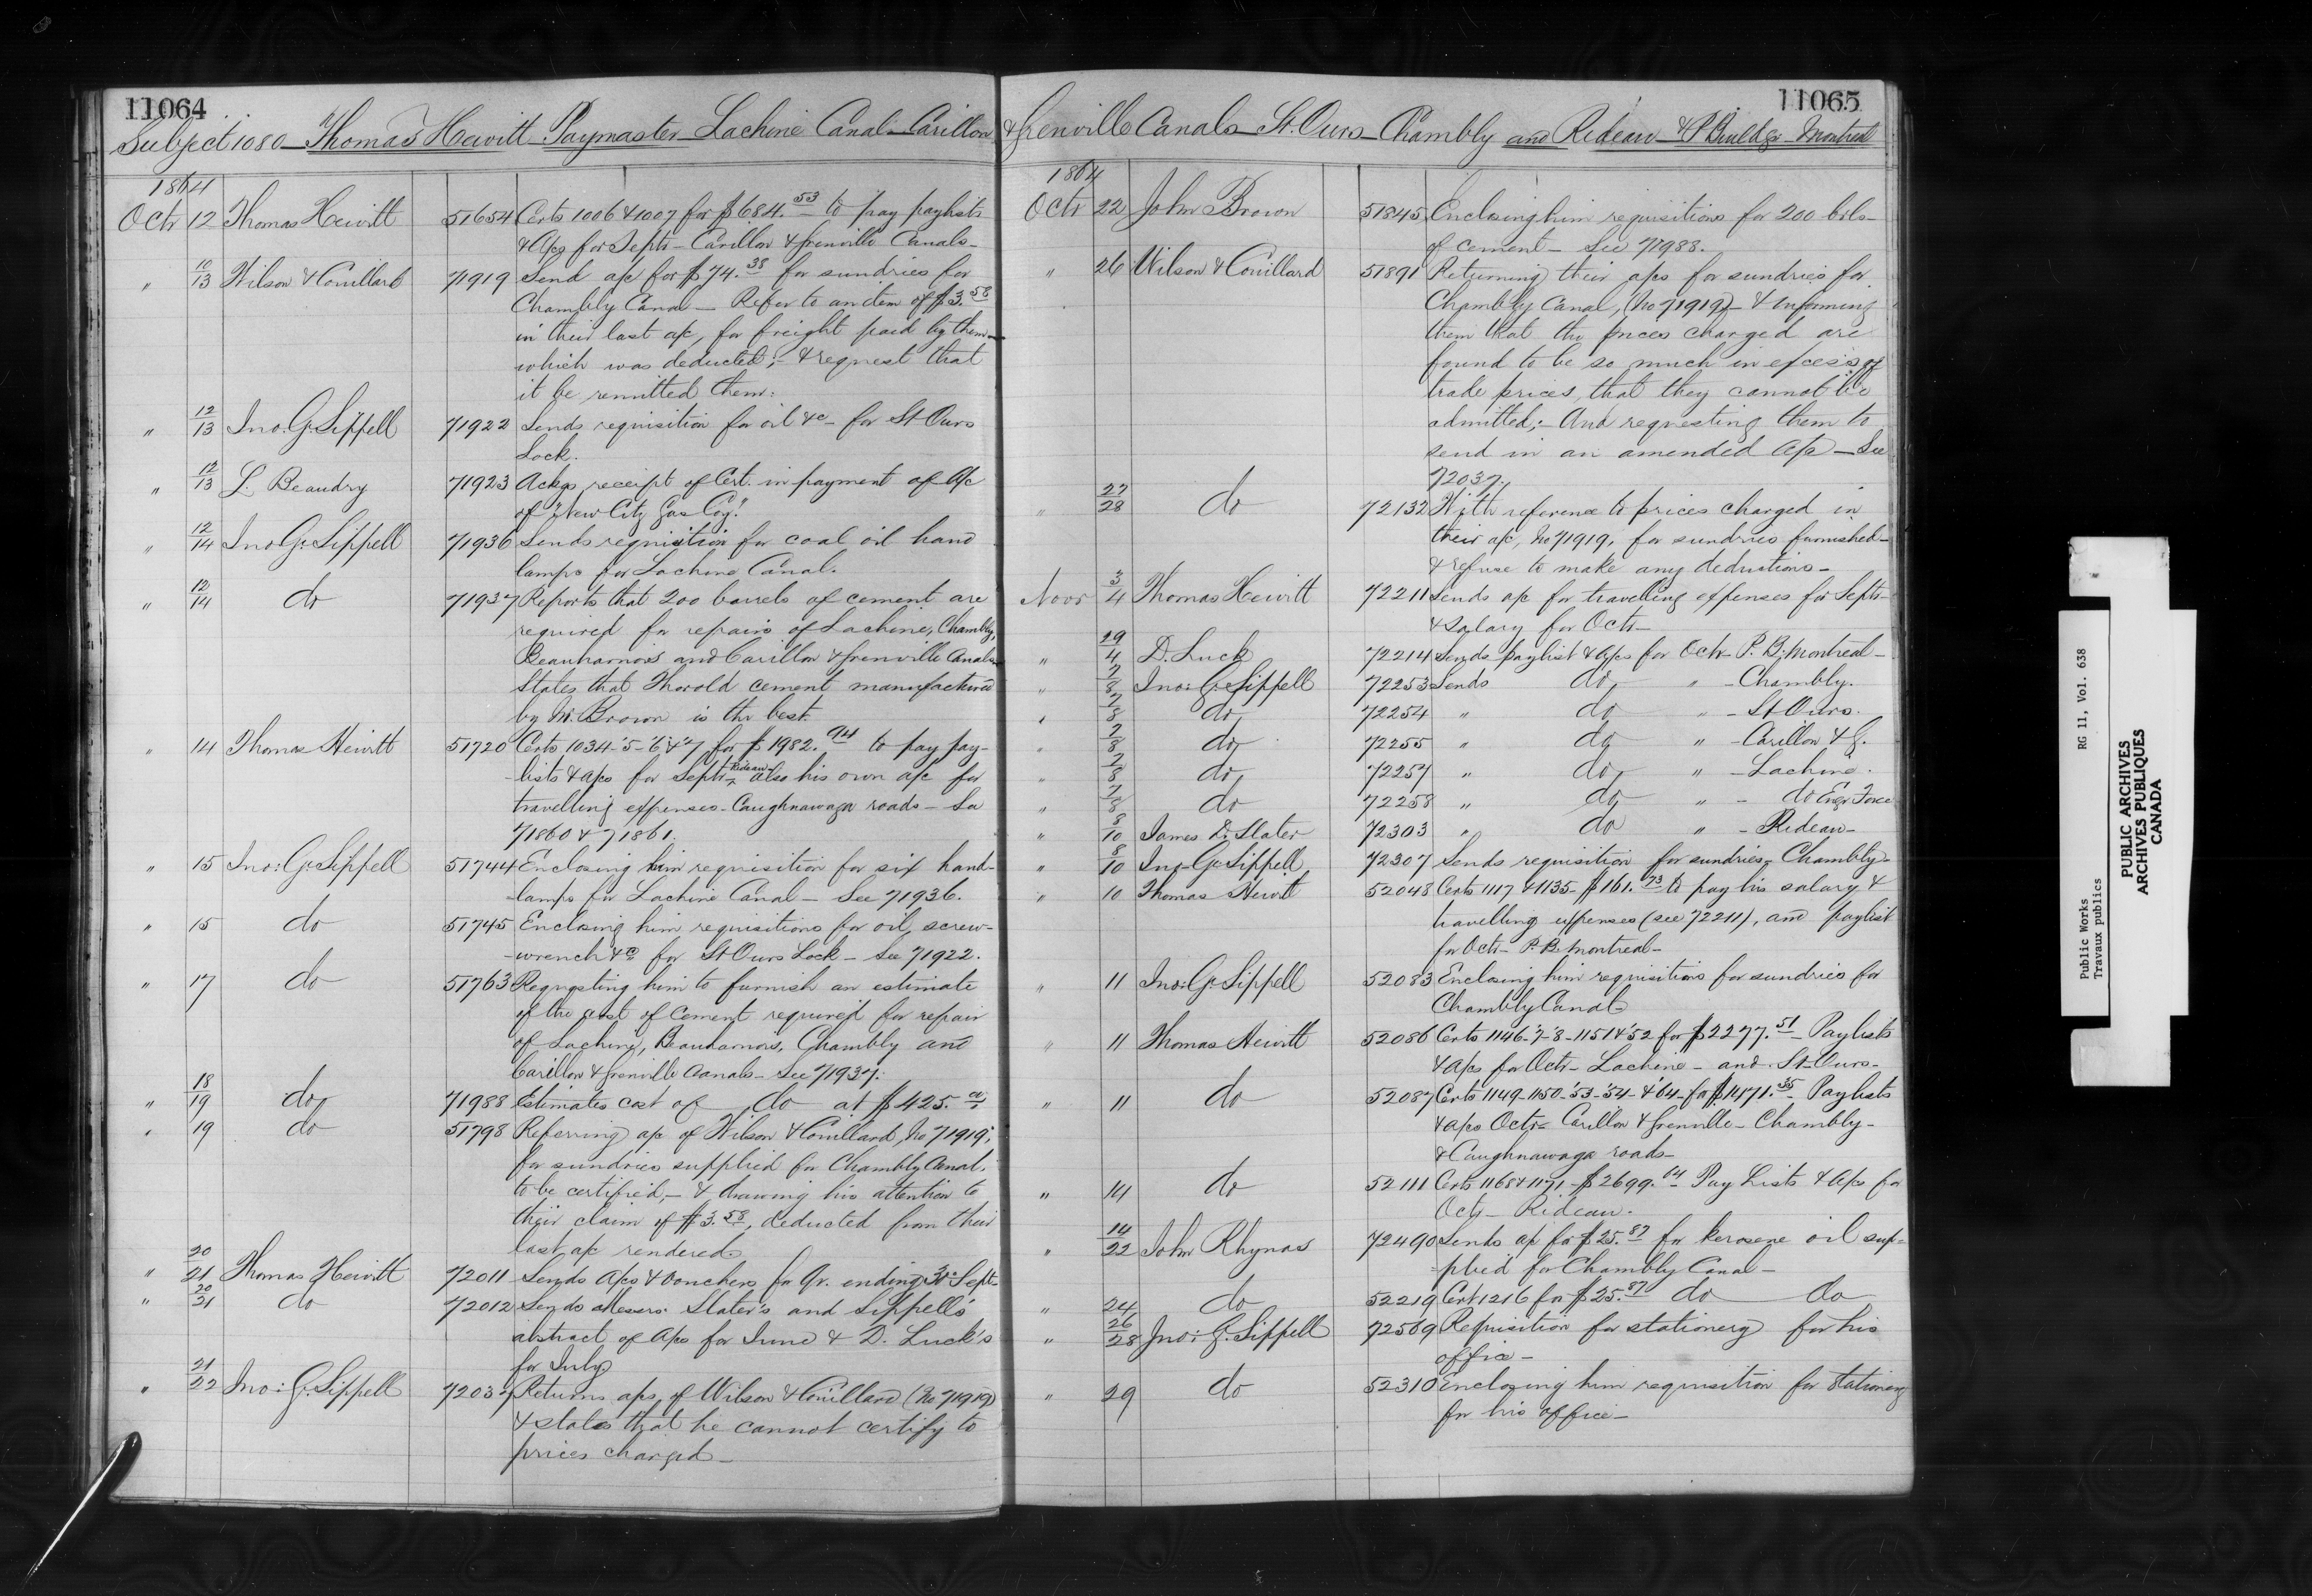 11064
Subject 1080 - Thomas Hewitt Paymaster - Lachine Canal - Carillon
1864
Octr 12 Thomas Hewitt 51654 Certs 1006 & 1007 for $684.53 to pay paylists
& a/cs for Septr - Carillon & Grenville Canals -
" 10/13 Wilson & Couillard 71919 Send a/c for $74.38 for sundries for
Chambly Canal - Refer to an item of $3.58
in their last a/c, for freight paid by them -
which was deducted; - & request that
it be remitted them.
" 12/13 Jno. G. Sippell 71922 Sends requisition for oil &c - for St Ours
Lock.
" 12/13 L. Beaudry 71923 Ackgs receipt of Cert. in payment of a/c
of "New City Gas Coy."
" 12/14 Jno. G. Sippell 71936 Sends requisition for coal oil hand
lamps for Lachine Canal.
" 12/14 do 71937 Reports that 200 barrels of cement are
required for repairs of Lachine, Chambly,
Beauharnois and Carillon & Grenville Canals -
States that Thorold cement manufactured
by Mr. Brown is the best.
" 14 Thomas Hewitt 51720 Certs 1034-'5-'6 & '7 for $1982.94 to pay pay-
lists & a/cs for Septr - Rideau - also his own a/c for
travelling expenses - Caughnawaga roads - See
71860 & 71861.
" 15 Jno: G. Sippell 51744 Enclosing him requisition for six hand-
-lamps for Lachine Canal - See 71936.
" 15 do 51745 Enclosing him requisitions for oil, screw-
-wrench &c for St Ours Lock - See 71922.
" 17 do 51763 Requesting him to furnish an estimate
of the cost of Cement required for repair
of Lachine, Beauharnois, Chambly and
Carillon & Grenville Canals - See 71937.
" 18/19 do 71988 Estimates cost of do at $425.00
" 19 do 51798 Referring a/c of Wilson & Couillard, No 71919,
for sundries supplied for Chambly Canal,
to be certified, - & drawing his attention to
their claim of $3.58, deducted from their
last a/c rendered.
" 20/21 Thomas Hewitt 72011 Sends a/cs & vouchers for Qr. ending 30 Sept -
" 20/21 do 72012 Sends Messrs. Slater's and Sippell's
abstract of a/cs for June & D. Luck's
for July.
" 21/22 Jno: G. Sippell 72037 Returns a/cs of Wilson & Couillard (No 71919)
& states that he cannot certify to
prices charged -
11065
& Grenville Canals - St. Ours - Chambly and Rideau - & P. Buildgs - Montreal
1864
Octr 22 John Brown 51845 Enclosing him requisitions for 200 brls -
of cement - See 71988.
" 26 Wilson & Couillard 51891 Returning their a/cs for sundries for
Chambly Canal, (No 71919) - & informing
them that the prices charged are
found to be so much in excess of
trade prices, that they cannot be
admitted; - And requesting them to
send in an amended a/c - See
72037.
" 27/28 do 72132 With reference to prices charged in
their a/c, No 71919, for sundries furnished -
& refuse to make any deductions -
Novr 3/4 Thomas Hewitt 72211 Sends a/c for travelling expenses for Septr -
& salary for Octr -
" 19/4 D. Luck 72214 Sends paylist & a/cs for Octr - P. B. Montreal -
" 7/8 Jno: G. Sippell 72253 Sends do " - Chambly.
" 7/8 do 72254 " do " - St Ours.
" 7/8 do 72255 " do " - Carillon & G.
" 7/8 do 72257 " do " - Lachine.
" 7/8 do 72258 " do " - do Engr. Force
" 8/10 James D. Slater 72303 " do " - Rideau -
" 8/10 Jno. G. Sippell 72307 Sends requisition for sundries - Chambly -
" 10 Thomas Hewitt 52048 Certs 1117 & 1135 - $161.73 to pay his salary &
travelling expenses (see 72211), and paylist
for Octr - P. B. Montreal -
" 11 Jno: G. Sippell 52083 Enclosing him requisitions for sundries for
Chambly Canal -
" 11 Thomas Hewitt 52086 Certs 1146-'7-'8-1151 & '52 for $2277.51 - Paylists
& a/cs for Octr - Lachine - and St Ours -
" 11 do 52087 Certs 1149-1150-'53-'54-& '64 - for $1471.35 - Paylists
& a/cs Octr - Carillon & Grenville - Chambly -
& Caughnawaga roads -
" 14 do 52111 Certs 1168 & 1171 - $2699.64 Pay Lists & a/cs for
Octr - Rideau.
" 14/22 John Rhynas 72490 Sends a/c for $25.87 for kerosene oil sup-
plied for Chambly Canal -
" 24 do 52219 Cert 1216 for $25.87 do do
" 26/28 Jno: G. Sippell 72569 Requisition for stationery for his
office -
" 29 do 52310 Enclosing him requisition for stationery
for his office -
Public Works RG 11, Vol. 638
Travaux publics
PUBLIC ARCHIVES
ARCHIVES PUBLIQUES
CANADA